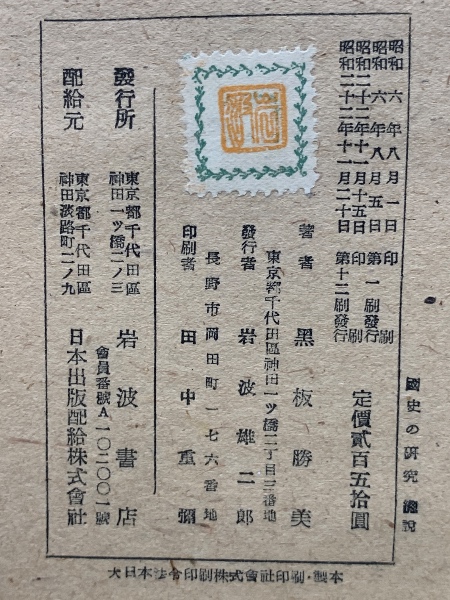 國史の研究 總說
昭和六年八月一日 印刷
昭和六年八月五日 第一刷發行
昭和二十二年十一月十五日 印刷
昭和二十二年十一月二十日 第十二刷發行
定價貳百五拾圓
著者 黑板勝美
東京都千代田區神田一ツ橋二丁目三番地
發行者 岩波雄二郎
長野市岡田町一七六番地
印刷者 田中重彌
發行所 東京都千代田區
神田一ツ橋二ノ三 岩波書店
會員番號A一〇二〇〇一號
配給元 東京都千代田區
神田淡路町二ノ九 日本出版配給株式會社
大日本法令印刷株式會社印刷・製本